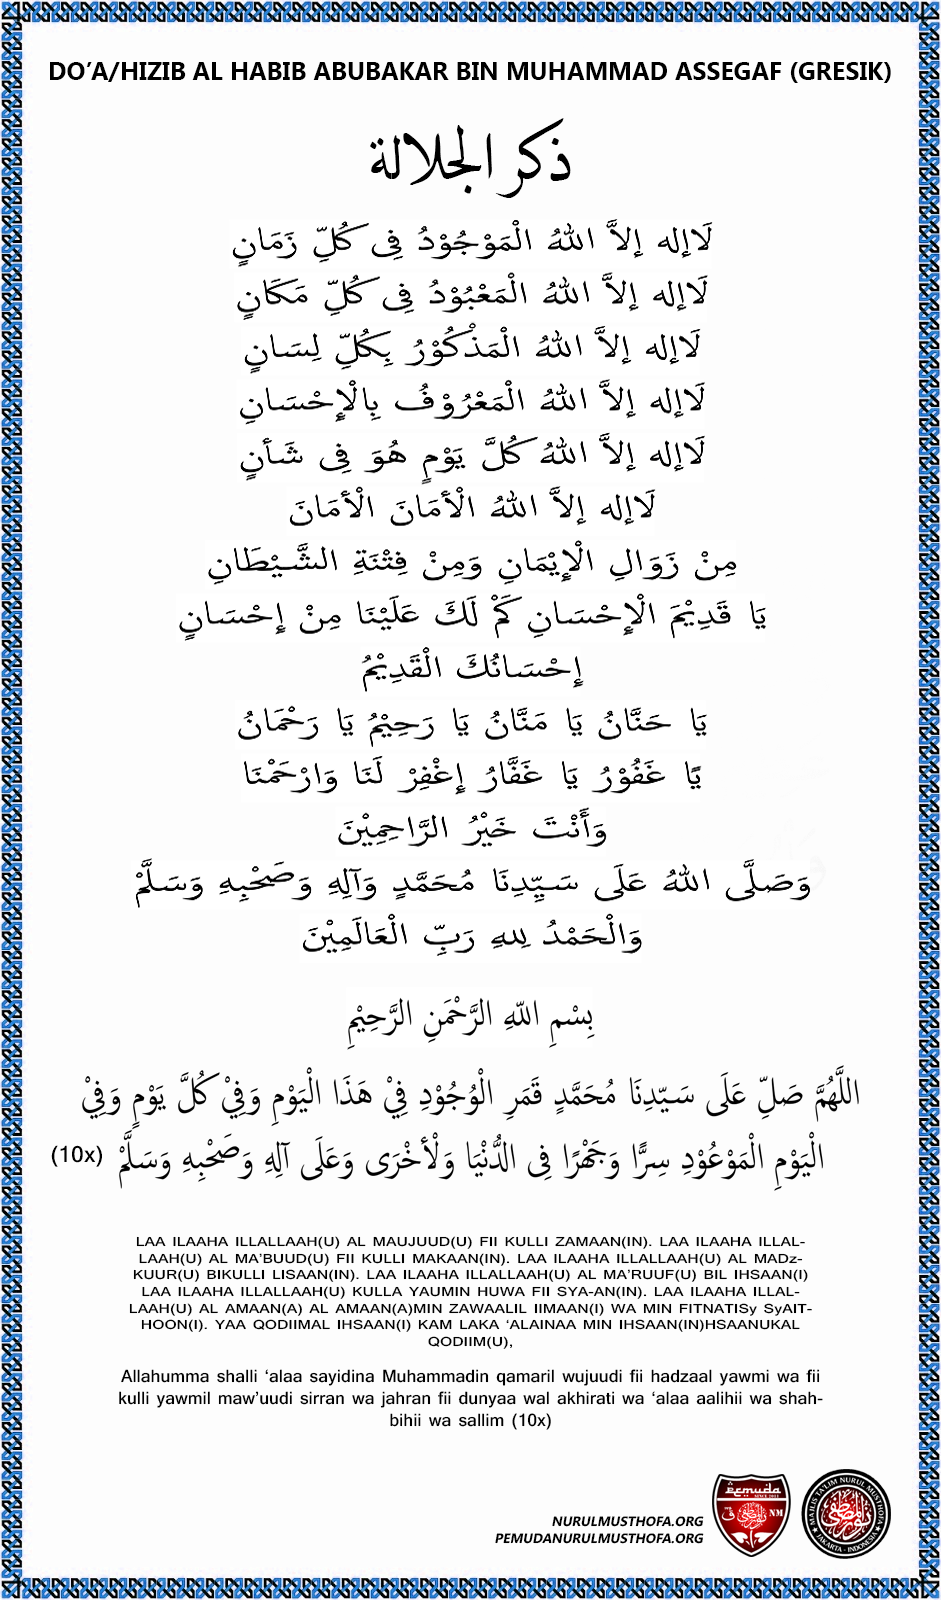 DO’A/HIZIB AL HABIB ABUBAKAR BIN MUHAMMAD ASSEGAF (GRESIK)
ذكر الجلالة
لَاإله إلاَّ اللهُ الْمَوْجُوْدُ فِى كُلِّ زَمَانٍ
لَاإله إلاَّ اللهُ الْمَعْبُوْدُ فِى كُلِّ مَكَانٍ
لَاإله إلاَّ اللهُ الْمَذْكُوْرُ بِكُلِّ لِسَانٍ
لَاإله إلاَّ اللهُ الْمَعْرُوْفُ بِالْإِحْسَانِ
لَاإله إلاَّ اللهُ كُلَّ يَوْمٍ هُوَ فِى شَأنٍ
لَاإله إلاَّ اللهُ الْأمَانَ الْأمَانَ
مِنْ زَوَالِ الْإِيْمَانِ وَمِنْ فِتْنَةِ الشَّيْطَانِ
يَا قَدِيْمَ الْإِحْسَانِ كَمْ لَكَ عَلَيْنَا مِنْ إِحْسَانٍ
إِحْسَانُكَ الْقَدِيْمُ
يَا حَنَّانُ يَا مَنَّانُ يَا رَحِيْمُ يَا رَحْمَانُ
يًا غَفُوْرُ يَا غَفَّارُ إِغْفِرْ لَنَا وَارْحَمْنَا
وَأَنْتَ خَيْرُ الرَّاحِمِيْنَ
وَصَلَّى اللهُ عَلَى سَيِّدِنَا مُحَمَّدٍ وَآلِهِ وَصَحْبِهِ وَسَلَّمْ
وَالْحَمْدُ لِلهِ رَبِّ الْعَالَمِيْنَ
بِسْمِ اللّهِ الرَّحْمَنِ الرَّحِيْمِ
اللَّهُمَّ صَلِّ عَلَى سَيّدِنَا مُحَمَّدٍ قَمَرِ الْوُجُوْدِ فِيْ هَذَا الْيَوْمِ وَفِيْ كُلَّ يَوْمٍ وَفِيْ
الْيَوْمِ الْمَوْعُوْدِ سِرًّا وَجَهْرًا فِى الدُّنْيَا وَلْأخْرَى وَعَلَى آلِهِ وَصَحْبِهِ وَسَلَّمْ (10x)
LAA ILAAHA ILLALLAAH(U) AL MAUJUUD(U) FII KULLI ZAMAAN(IN). LAA ILAAHA ILLAL-
LAAH(U) AL MA’BUUD(U) FII KULLI MAKAAN(IN). LAA ILAAHA ILLALLAAH(U) AL MADz-
KUUR(U) BIKULLI LISAAN(IN). LAA ILAAHA ILLALLAAH(U) AL MA’RUUF(U) BIL IHSAAN(I)
LAA ILAAHA ILLALLAAH(U) KULLA YAUMIN HUWA FII SYA-AN(IN). LAA ILAAHA ILLAL-
LAAH(U) AL AMAAN(A) AL AMAAN(A)MIN ZAWAALIL IIMAAN(I) WA MIN FITNATISy SyAIT-
HOON(I). YAA QODIIMAL IHSAAN(I) KAM LAKA ‘ALAINAA MIN IHSAAN(IN)HSAANUKAL
QODIIM(U),
Allahumma shalli ‘alaa sayidina Muhammadin qamaril wujuudi fii hadzaal yawmi wa fii
kulli yawmil maw’uudi sirran wa jahran fii dunyaa wal akhirati wa ‘alaa aalihii wa shah-
bihii wa sallim (10x)
NURULMUSTHOFA.ORG
PEMUDANURULMUSTHOFA.ORG
Pemuda
SINCE 2011
NM
MAJLIS TA'LIM NURUL MUSTHOFA
JAKARTA - INDONESIA